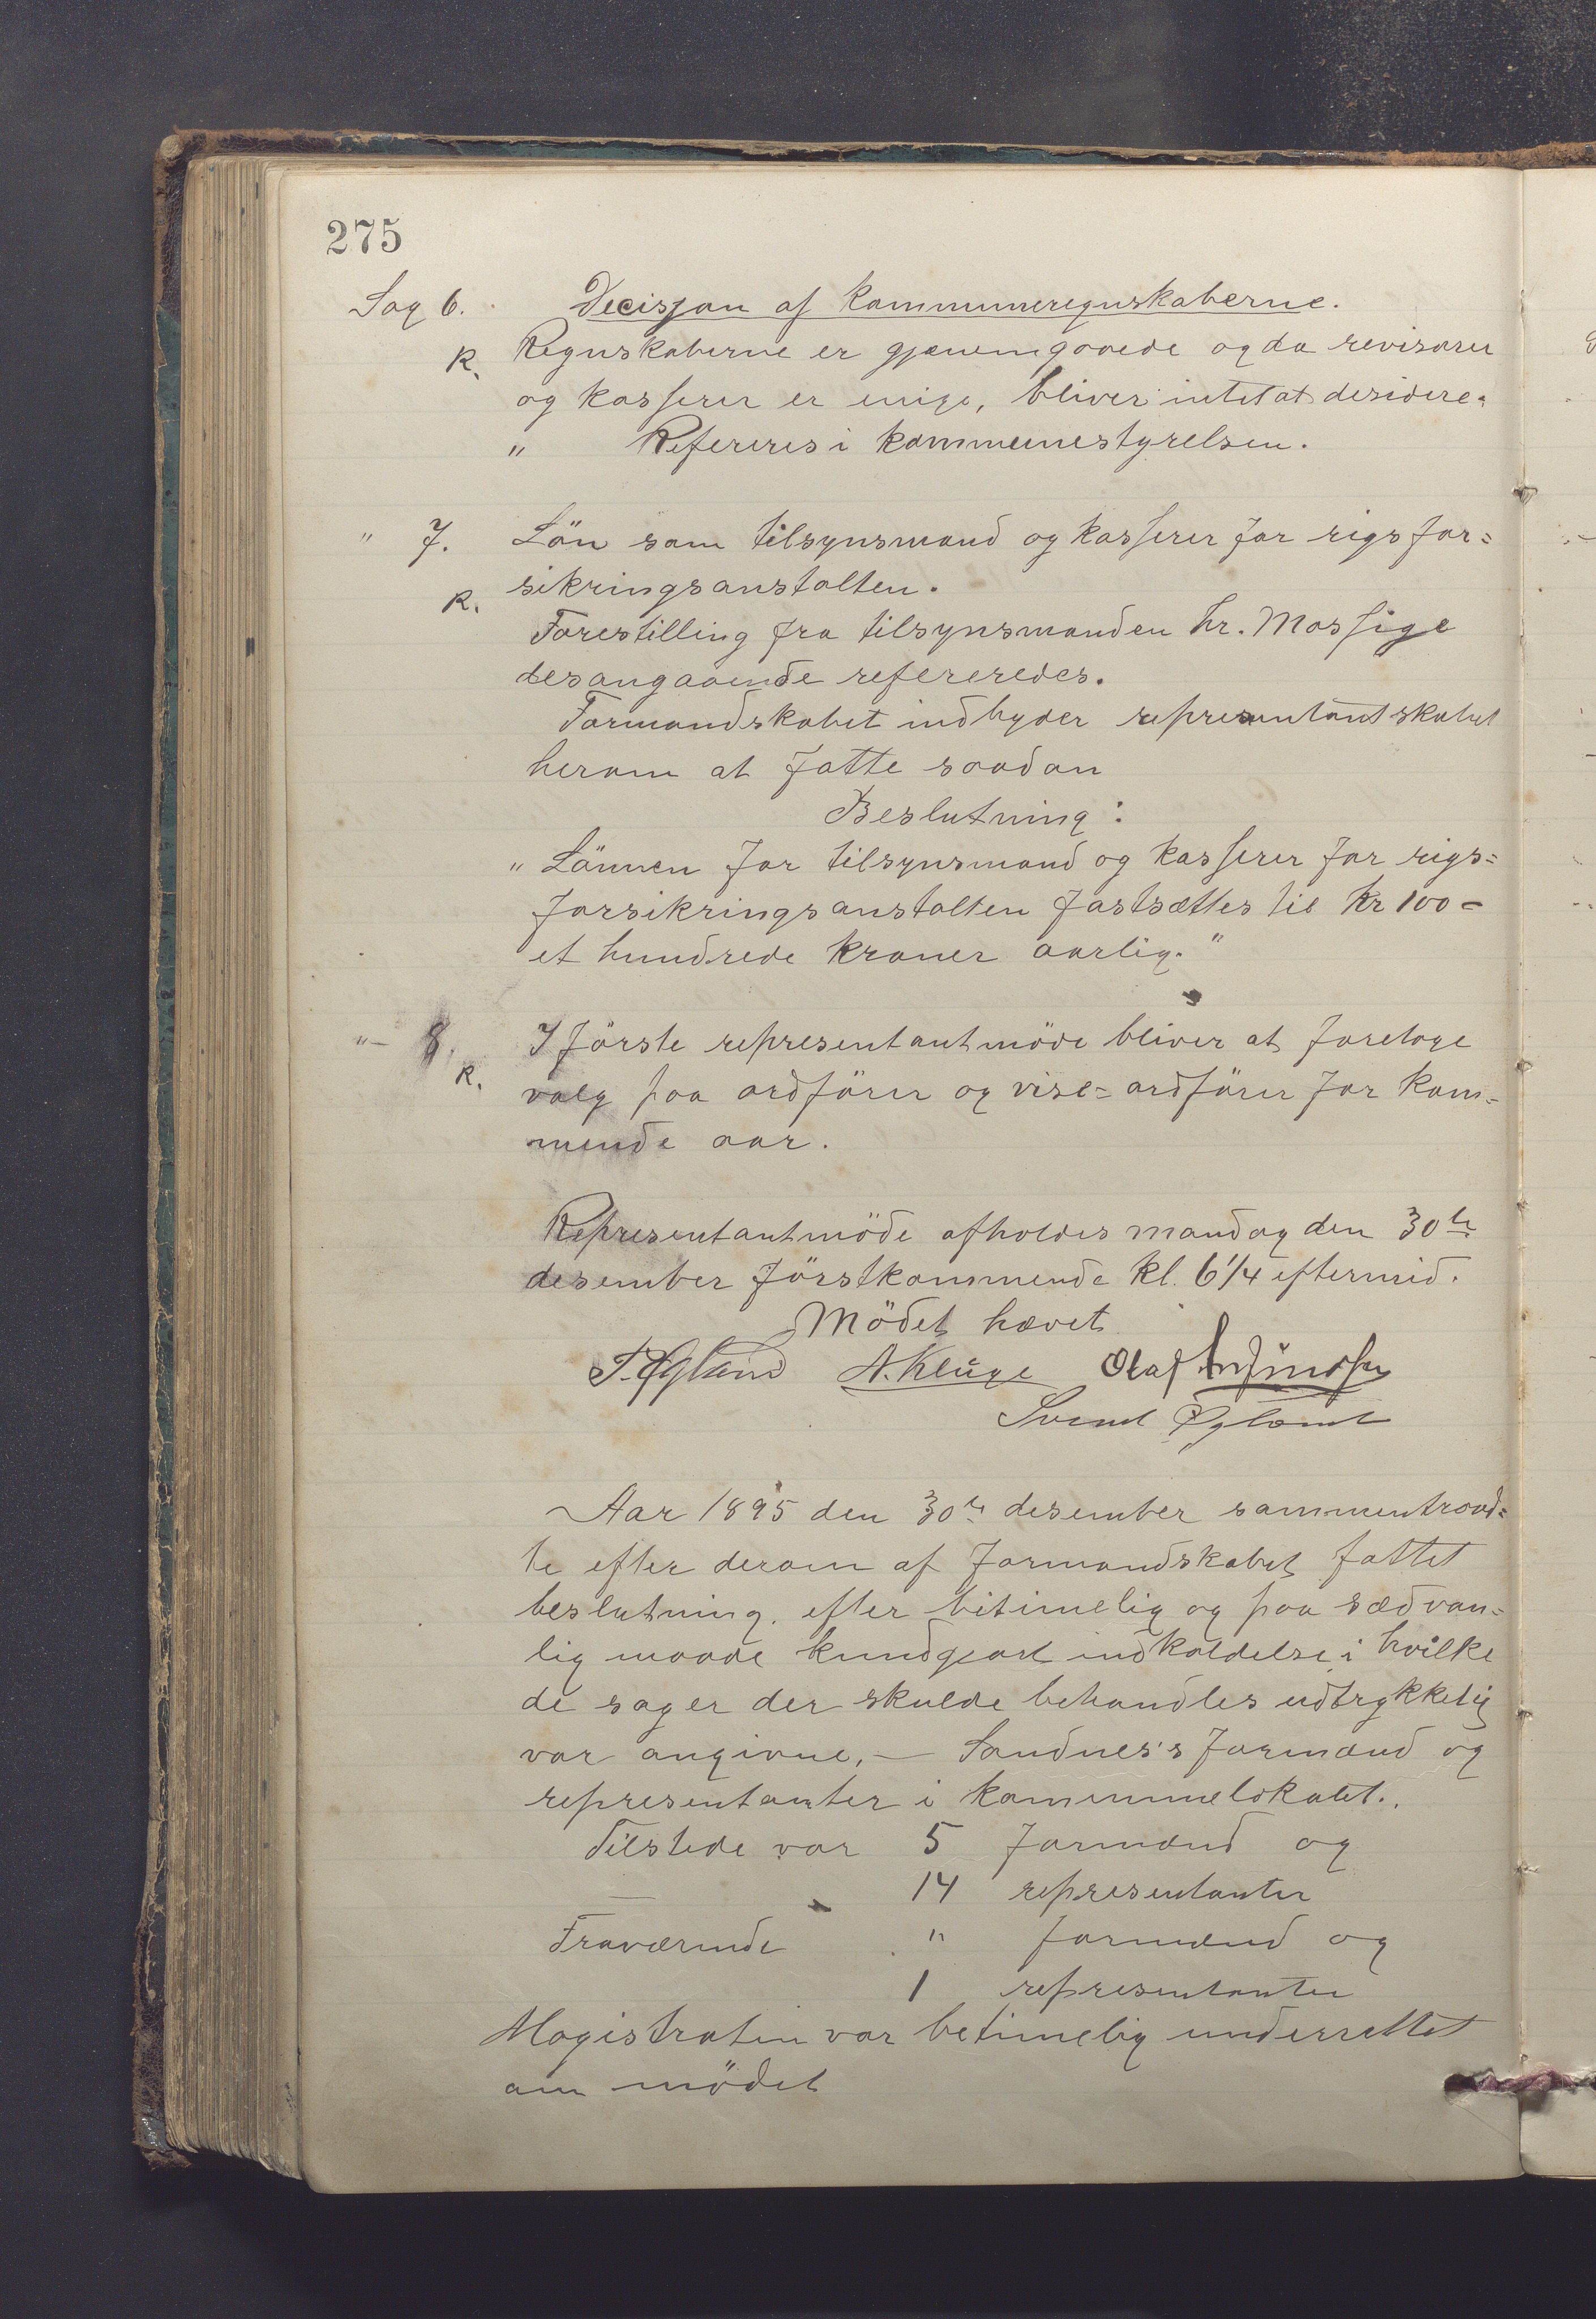 275
Sag 6. Decisjon af kommuneregnskaberne.
R. Regnskaberne er gjænemgaaede og da revisorer
og kasserer er enige, bliver intet at desidere.
" Refereres i kommunestyrelsen.
" 7. Lön som tilsynsmand og kasserer for rigsfor=
R. sikringsanstalten.
Forestilling fra tilsynsmanden hr. Mossige
desangaaende refereredes.
Formandskabet indbyder representantskabet
herom at fatte saadan
Beslutning:
"Lönnen for tilsynsmand og kasserer for rigs=
forsikringsanstalten fastsættes til kr 100 =
et hundrede kroner aarlig."
"- 8. I förste representantmöde bliver at foretage
R. valg paa ordförer og vise=ordförer for kom=
mende aar.
Representantmöde afholdes mandag den 30te
desember förstkommende kl. 6 1/4 eftermid.
Mödet hævet
T. Øgland A. Kluge Olaf
Svend Øgland
Aar 1895 den 30te desember sammentraad=
te efter derom af formandskabet fattet
beslutning, efter betimelig og paa sædvan=
lig maade kundgjort indkaldelse i hvilke
de sager der skulde behandles udtrykkelig
var angivne, — Sandnes's formænd og
representanter i kommunelokalet.
Tilstede var 5 formænd og
— 14 representanter
Fraværende " formænd og
1 representanter
Magistraten var betimelig underrettet
om mödet